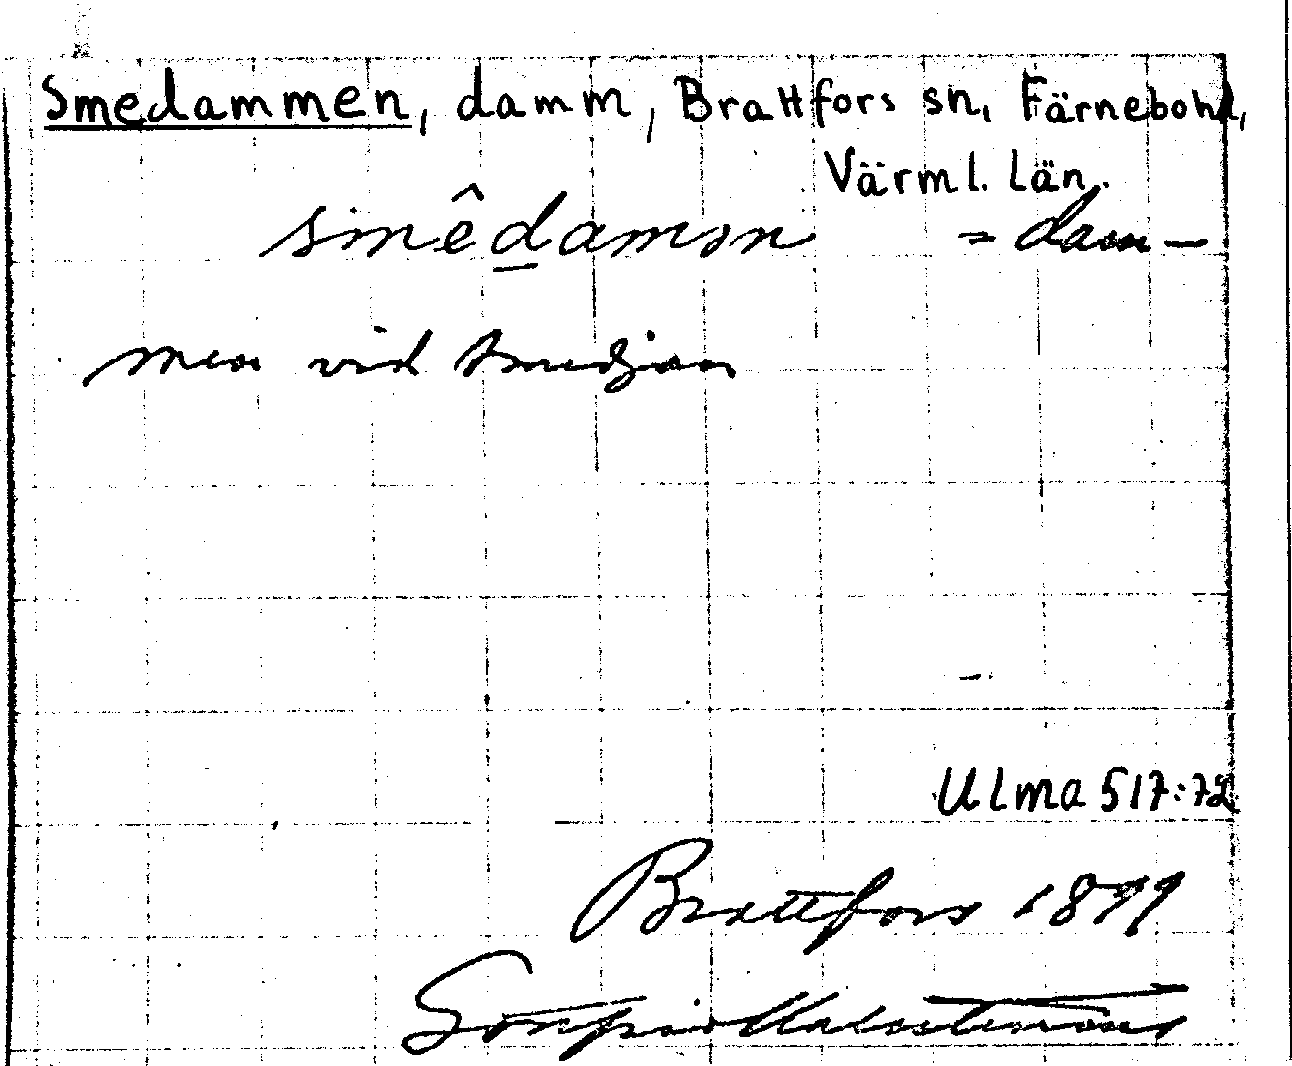 Smedammen, damm, Brattfors sn, Färnebohd,
Värml. län.
smêdamən = dam-
men vid smedjan
Ulma 517:72
Brattfors 1899